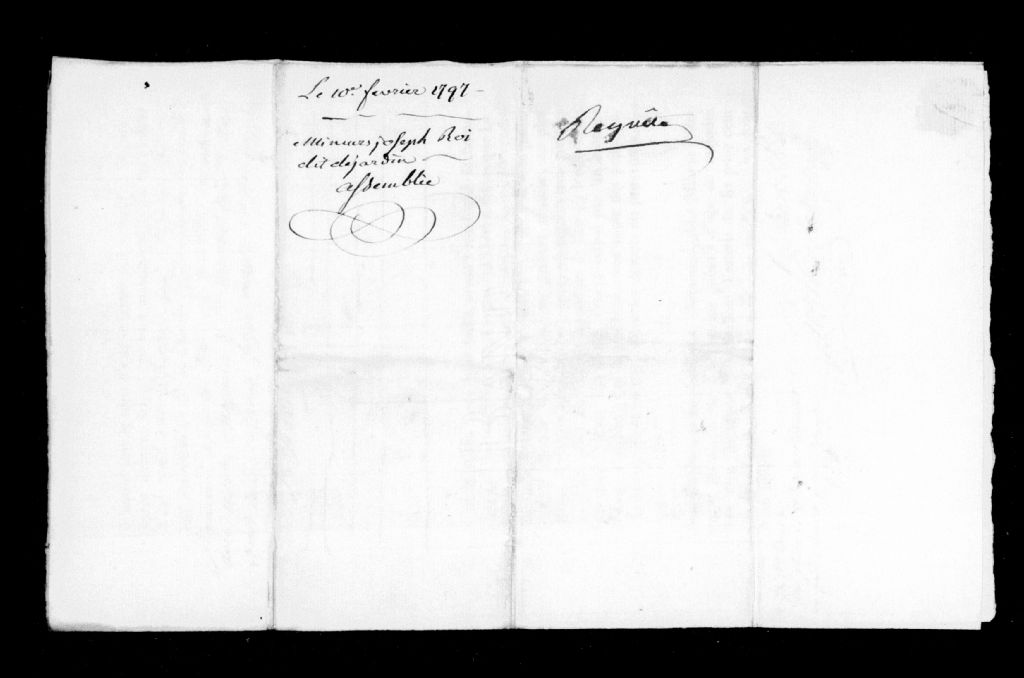 Le 10er fevrier 1797
Mineurs joseph Roi
dit dejardin
assemblée
Requête